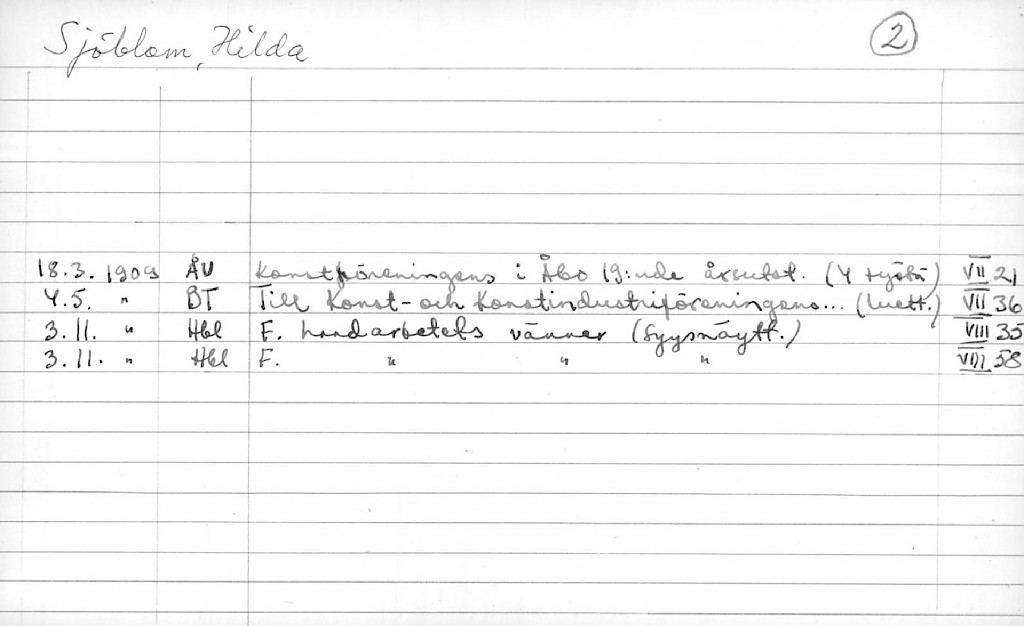 Sjöblom, Hilda 2
18.3. 1909 ÅU Konstföreningens i Åbo 19:nde årsutst. (4 työtä) VII 21
4.5. " BT Till Konst- och Konstindustriföreningens... (luett.) VII 36
3.11. " Hbl F. handarbetets vänner (Syysnäytt.) VIII 35
3.11. " Hbl F. " " " VIII 58